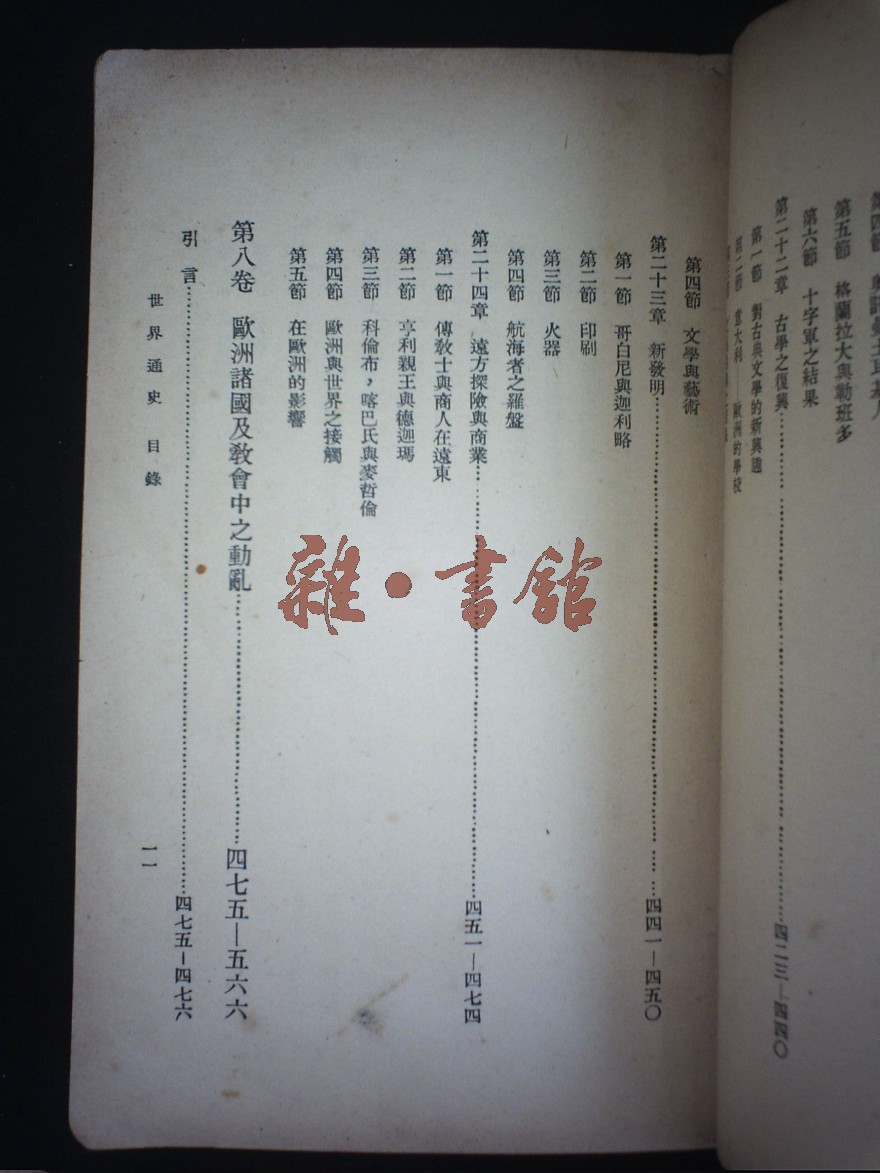 第五節　格蘭拉大與勒班多
第六節　十字軍之結果
第二十二章　古學之復興……四二三—四四〇
第一節　對古典文學的新興趣
第二節　意大利—歐洲的學校
第四節　文學與藝術
第二十三章　新發明……四四一—四五〇
第一節　哥白尼與迦利略
第二節　印刷
第三節　火器
第四節　航海者之羅盤
第二十四章　遠方探險與商業……四五一—四七四
第一節　傳教士與商人在遠東
第二節　亨利親王與德迦瑪
第三節　科倫布，喀巴氏與麥哲倫
第四節　歐洲與世界之接觸
第五節　在歐洲的影響
第八卷　歐洲諸國及教會中之動亂……四七五—五六六
引言……四七五—四七六
世界通史　目錄
一一
雜·書館